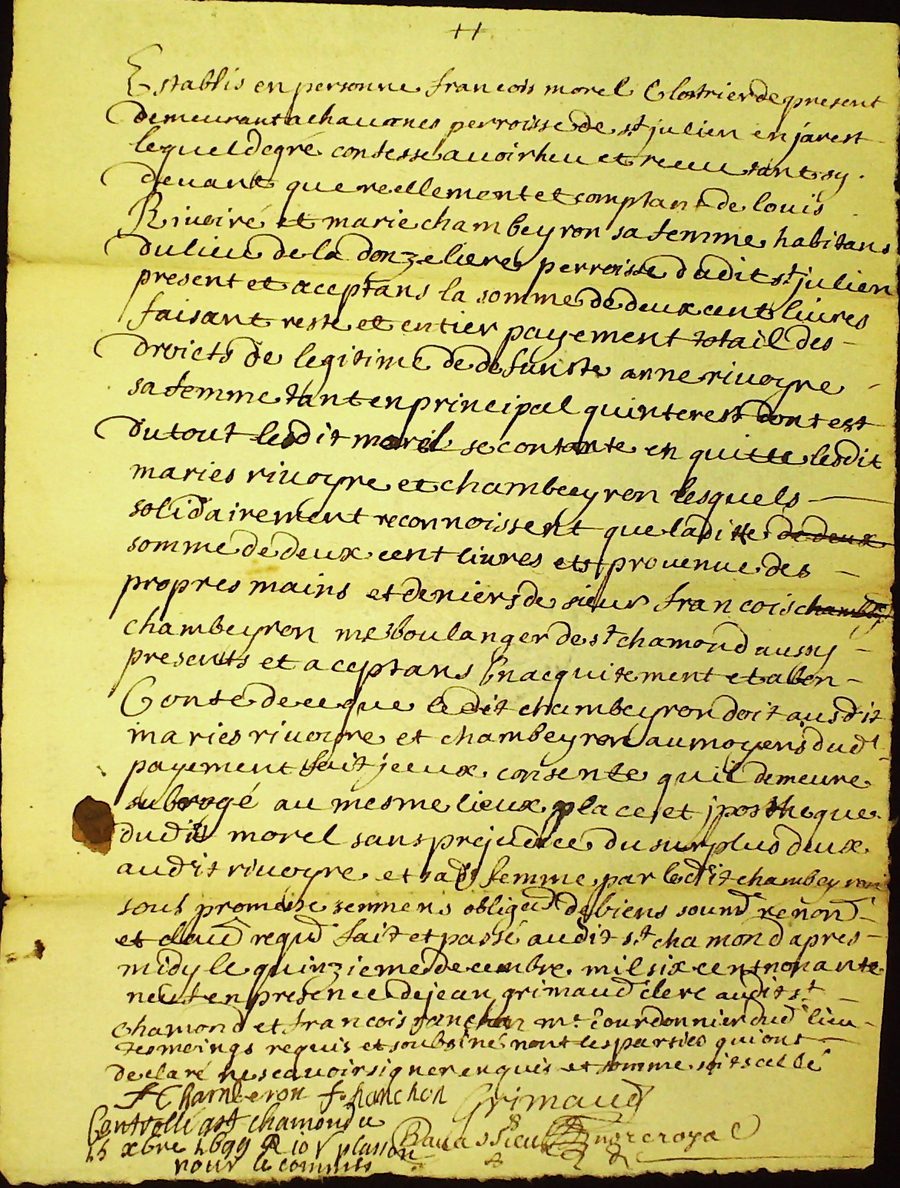 Establis en personne francois morel Clostrier de present
demeurant a chauanes perroisse de st julien en jarest
lequel de gré confesse auoir heu et receu tant cy
deuant que reellement et comptant de louis
Riuoiré et marie chambeyron sa femme habitans
du lieu de la donzeliere perroisse dudit st julien
present et aceptans la somme de deux cent liures
faisant reste et entier payement totail des
droicts de legitime de defuncte anne riuoyre
sa femme tant en principal qu'interest dont est
du tout ledit morel se contante en quitte lesdit
maries riuoyre et chambeyron lesquels
solidairement reconnoissent que laditte de deux
somme de deux cent liures est prouenue des
propres mains et deniers de sieur francois
chambeyron me boulanger de st chamond aussy
presents et aceptans en acquitement et a bon
Conte de ce que ledit chambeyron doit ausdit
maries riuoyre et chambeyron au moyens dud
payement fait jceux consente qu'il demeure
subrogé au mesme lieux place et jpotheque
dudit morel sans prejudice du surplus deux
audit riuoyre et sad femme par ledit chambeyron
sous promesse sermens obliged de biens soumd renond
et claud requd fait et passé audit st chamond apres
midy le quinzieme decembre mil six cent nonante
neuf en presence de jean grimaud clerc audit st
chamond et francois janchon mt Courdonnier dud lieu
tesmoings requis et soubsinés nont les parties qui ont
declaré ne scauoir signer enquis et somme
F Chamberon f hanchon Grimaud
Controllé a st chamond ce
15 xbre 1699 R 10 s
pour le commis
Rauassieu no^re royal